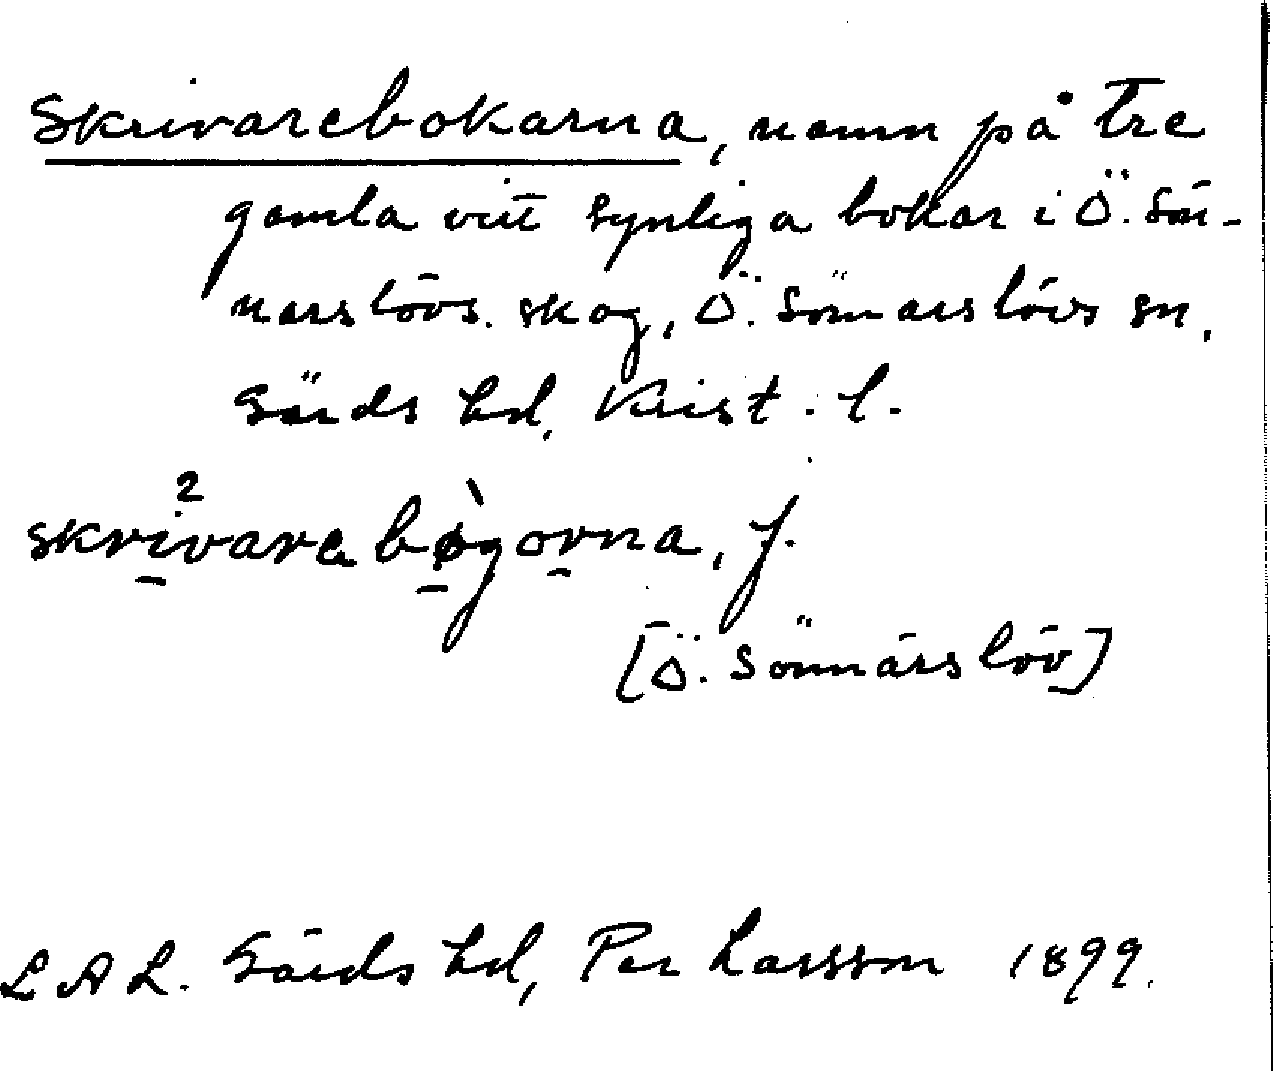 Skrivarebokarna, namn på tre
gamla vitt synliga bokar i Ö. Sön-
narslövs. skog, Ö. Sönnarslövs sn,
Gärds hd, Krist. l.
skrivarabøgorna, f.
[Ö. Sönnarslöv]
LAL. Gärds hd, Per Larsson 1899.